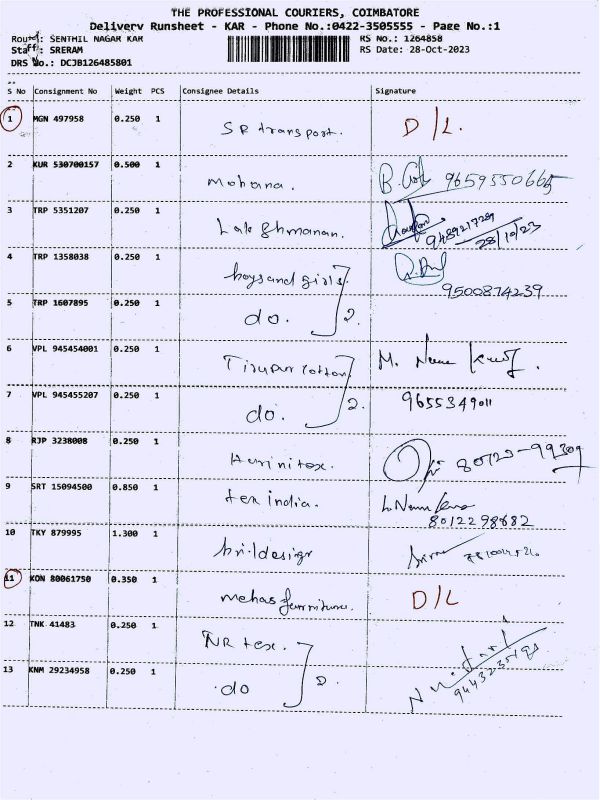 THE PROFESSIONAL COURIERS, COIMBATORE
Delivery Runsheet - KAR - Phone No.:0422-3505555 - Page No.:1
Route: SENTHIL NAGAR KAR RS No.: 1264858
Staff: SRERAM RS Date: 28-Oct-2023
DRS No.: DCJB126485801
S No Consignment No Weight PCS Consignee Details Signature
1 MGN 497958 0.250 1 SR transport. D/L.
2 KUR 530700157 0.500 1 Mohana. 9659550665
3 TRP 5351207 0.250 1 Lakshmanan. 28/10/23
4 TRP 1358038 0.250 1 boys and girls.
9500874239
5 TRP 1607895 0.250 1 do. 2.
6 VPL 945454001 0.250 1 Tirupur cotton M.
7 VPL 945455207 0.250 1 do. 2. 9655349011
8 RJP 3238008 0.250 1
9 SRT 15094500 0.850 1 tex india.
8012298682
10 TKY 879995 1.300 1
11 KON 80061750 0.350 1 mehas furniture. D/L
12 TNK 41483 0.250 1 NR tex.
13 KNM 29234958 0.250 1 do 2.